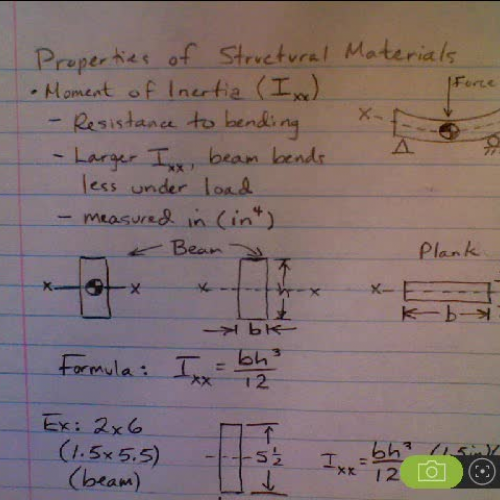 Properties of Structural Materials
• Moment of Inertia (Ixx)
- Resistance to bending
- Larger Ixx, beam bends
less under load
- measured in (in⁴)
Force
x
Beam
Plank
x x
x x
h
b
x
b
Formula: Ixx = bh³/12
Ex: 2x6
(1.5 x 5.5)
(beam)
5 1/2
Ixx = bh³/12 (1.5in)(